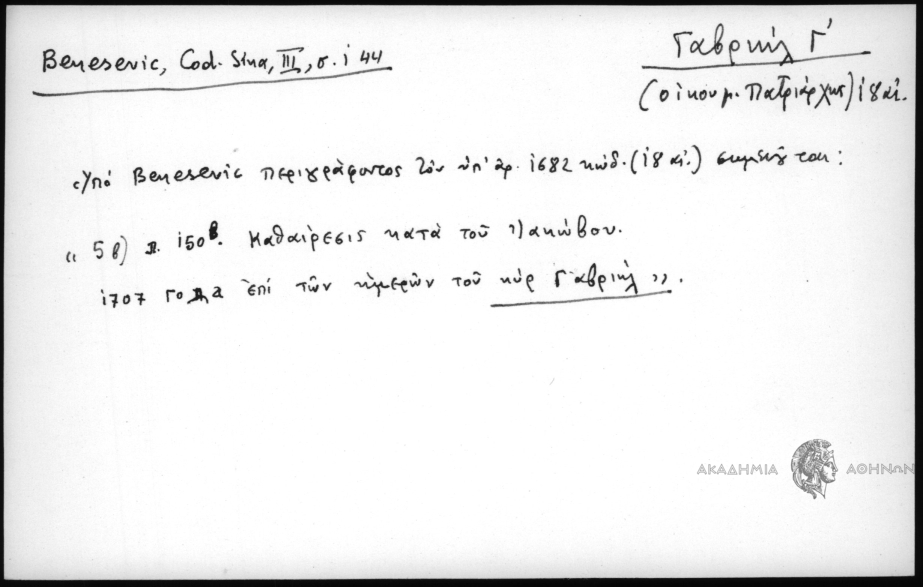 Benesevic, Cod. Sina, III, σ. 144
Γαβριήλ Γ'
(Οἰκουμ. Πατριάρχης) 18 αἰ.
Ὑπό Benesevic περιγράφοντος τὸν ὑπ' ἀρ. 1682 κώδ. (18 αἰ.) σημειοῦται:
« 5 в) л. 150в. Καθαίρεσις κατὰ τοῦ Ἰακώβου.
1707 года ἐπί τῶν ἡμερῶν τοῦ κύρ Γαβριήλ ».
ΑΚΑΔΗΜΙΑ ΑΘΗΝΩΝ